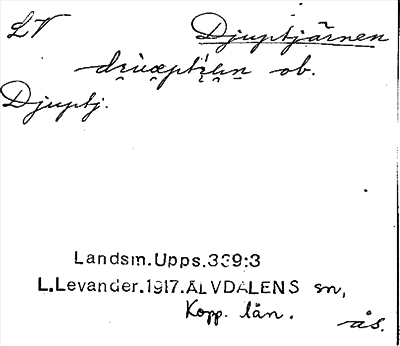 LV Djuptjärnen
ob.
Djuptj.
Landsm.Upps.339:3
L.Levander.1917.ÄLVDALENS sn,
Kopp. län.
ås.